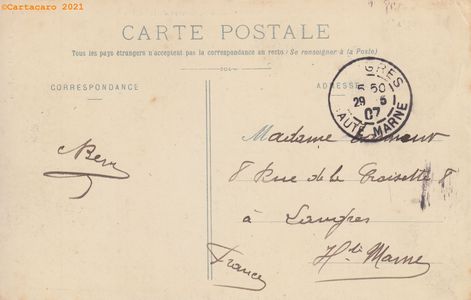 ©Cartacaro 2021
CARTE POSTALE
Tous les pays étrangers n'acceptent pas la correspondance au recto (Se renseigner à la Poste)
CORRESPONDANCE
ADRESSE
GRES
5 50
29 5
07
HAUTE MARNE
Madame
8 Rue de la Croisette 8
à Langres
Hte Marne
France